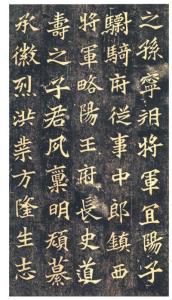 之孫寧朔將軍宜陽子
驃騎府從事中郎鎮西
將軍略陽王府長史道
壽之子君夙稟明頎慕
承徽烈洪業方隆生志